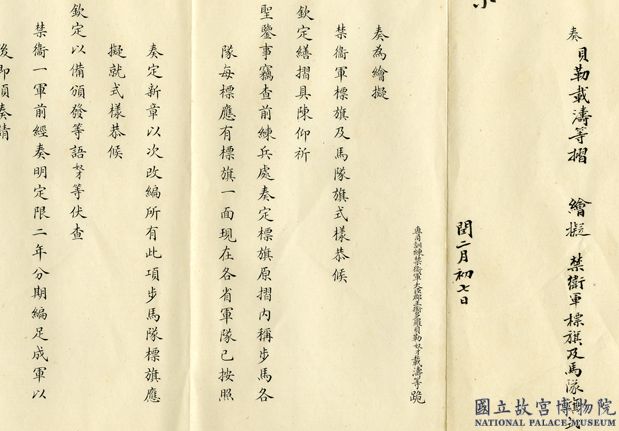 奏 貝勒載濤等摺 繪擬 禁衞軍標旗及馬隊
閏二月初七日
專司訓練禁衞軍大臣郡王銜多羅貝勒奴才載濤等跪
奏為繪擬
禁衞軍標旗及馬隊旗式樣恭候
欽定繕摺具陳仰祈
聖鑒事竊查前練兵處奏定標旗原摺內稱步馬各
隊每標應有標旗一面現在各省軍隊已按照
奏定新章以次改編所有此項步馬隊標旗應
擬就式樣恭候
欽定以備頒發等語奴才等伏查
禁衞一軍前經奏明定限二年分期編足成軍以
後即須奏請
國立故宮博物院
NATIONAL PALACE MUSEUM